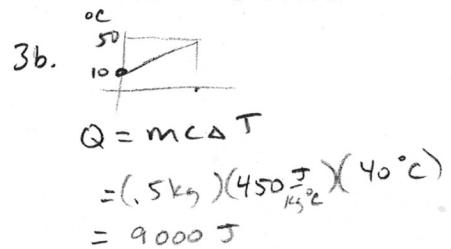 °C
50
3b.
10
Q = mcΔT
=(.5kg)(450 J/kg°C)(40°C)
= 9000 J